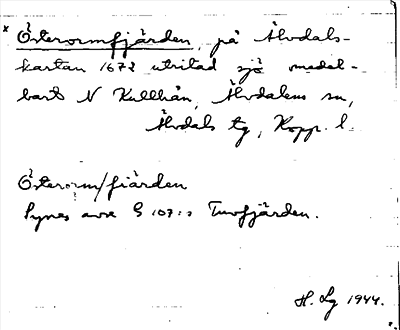 * Österormfjärden, på Älvdals-
kartan 1672 utritad sjö medel-
bart N Kullhån, Älvdalens sn,
Älvdals tg, Kopp. l.
Österorm/fiärden
Synes avse G 107:2 Turfjärden.
H. Lg 1944.